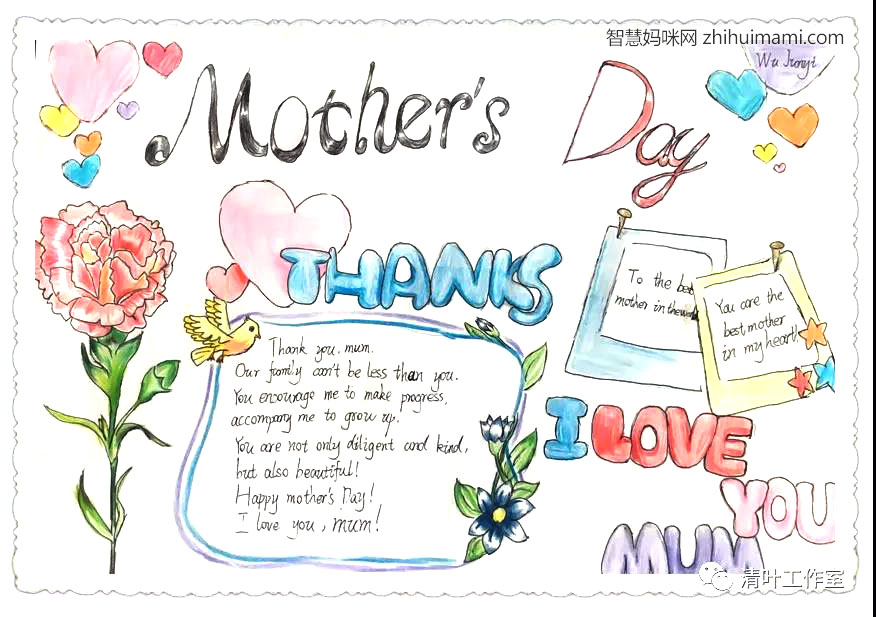 智慧妈咪网 zhihuimami.com
Wu Junyi
Mother's Day
THANKS
Thank you, mum.
Our family can't be less than you.
You encourage me to make progress,
accompany me to grow up.
You are not only diligent and kind,
but also beautiful!
Happy mother's Day!
I love you, mum!
To the best
mother in the world
You are the
best mother
in my heart!
I LOVE
YOU
MUM
清叶工作室